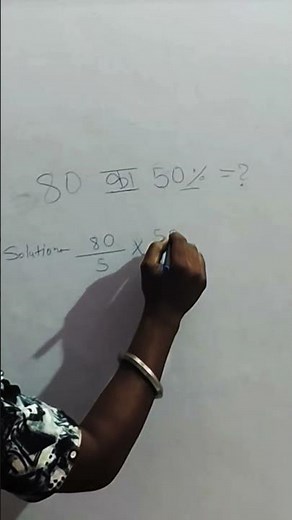 80 का 50% = ?
Solution 80/5 × 5